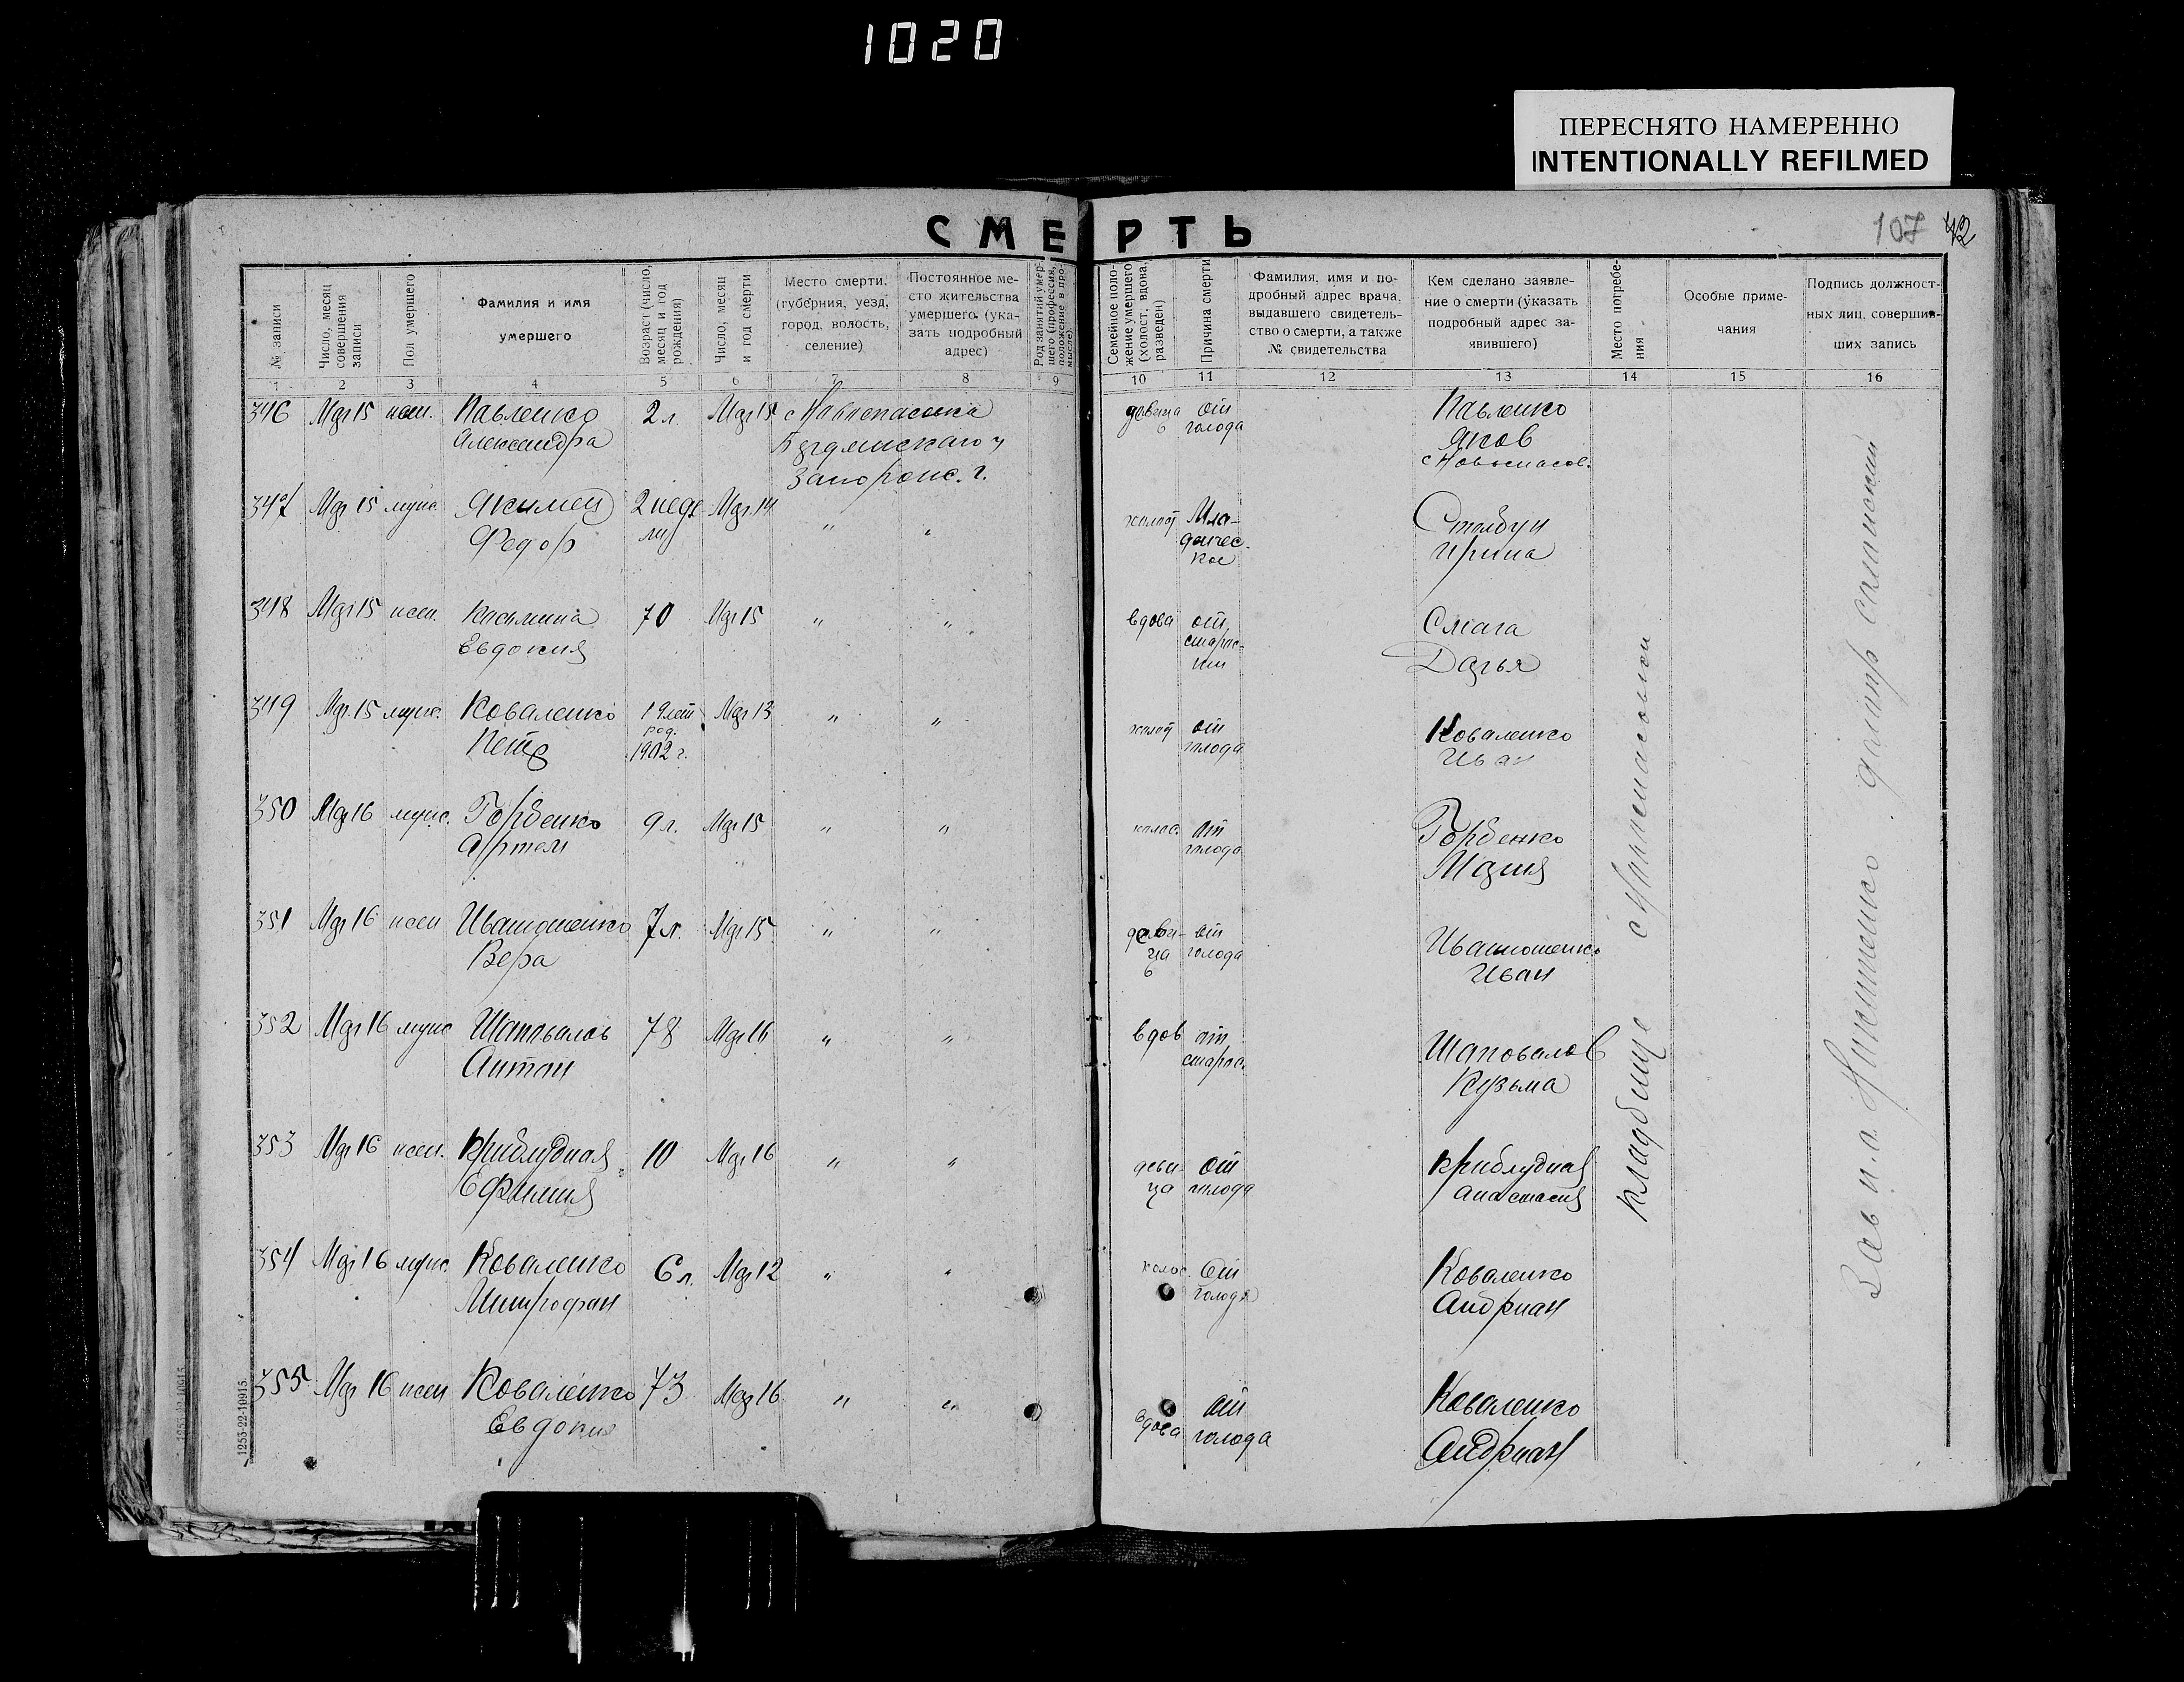 1020
ПЕРЕСНЯТО НАМЕРЕННО
INTENTIONALLY REFILMED
СМЕРТЬ
107 42
№ записи
Число, месяц совершения записи
Пол умершего
Фамилия и имя умершего
Возраст (число, месяц и год рождения)
Число, месяц и год смерти
Место смерти, (губерния, уезд, город, волость, селение)
Постоянное место жительства умершего (указать подробный адрес)
Род занятий умершего (профессия, положение в промысле)
Семейное положение умершего (холост, вдова, разведен)
Причина смерти
Фамилия, имя и подробный адрес врача, выдавшего свидетельство о смерти, а также № свидетельства
Кем сделано заявление о смерти (указать подробный адрес заявившего)
Место погребения
Особые примечания
Подпись должностных лиц, совершивших запись
1 2 3 4 5 6 7 8 9 10 11 12 13 14 15 16
346 Мрт 15 жен. Павленко Александра 2 л. Мрт 15 с Новоспасовка Бердянского у Запорож. г. девица от голода Павленко Яков с Новоспасов.
347 Мрт 15 муж. Якимец Федор 2 недели Мрт 14 " " холост Младенческое Столбун Ирина
348 Мрт 15 жен. Касьмина Евдокия 70 Мрт 15 " " вдова от старости Дарья
349 Мрт 15 муж. Коваленко Петр 19 лет род. 1902 г. Мрт 13 " " холост от голода Коваленко Иван
350 Мрт 16 муж. Горбенко Артем 9 л. Мрт 15 " " холос. от голода Горбенко Мария
351 Мрт 16 жен Ивашошенко Вера 7 л. Мрт 15 " " девица от голода Ивашошенко Иван
352 Мрт 16 муж Шаповалов Антон 78 Мрт 16 " " вдов от старос. Шаповалов Кузьма
353 Мрт 16 жен. Приблудная Ефимия 10 Мрт 16 " " девица от голода Приблудная Анастасия
354 Мрт 16 муж. Коваленко Митрофан 6 л. Мрт 12 " " холос. от голода Коваленко Андриан
355 Мрт 16 жен Коваленко Евдокия 73 Мрт 16 " " вдова от голода Коваленко Андриан
кладбище с Новоспасовки
Зав п.о.
1253-22-10915